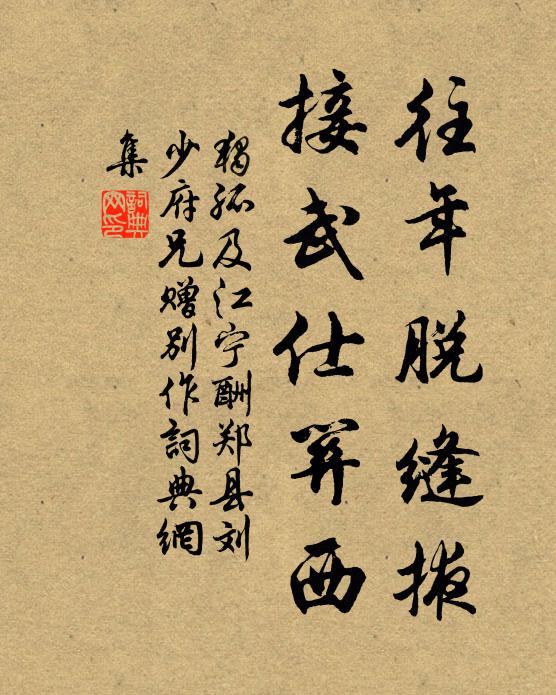 往年脱缝掖
接武仕关西
独孤及江宁酬郑县刘
少府兄赠别作詞典網
集
詞典网印